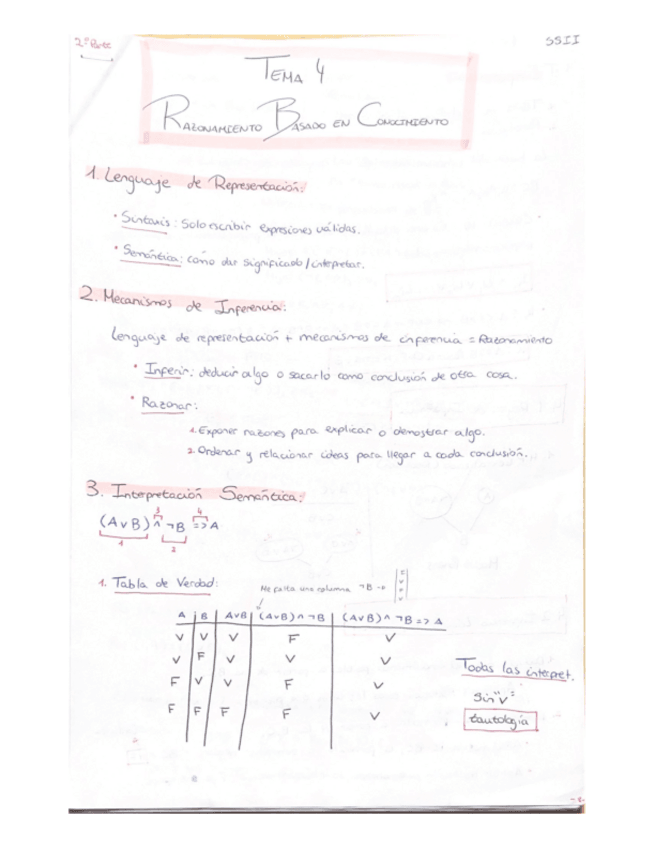 2ª Parte
SSII
TEMA 4
RAZONAMIENTO BASADO EN CONOCIMIENTO
1. Lenguaje de Representación:
• Sintaxis: Solo escribir expresiones válidas.
• Semántica: cómo dar significado/interpretar.
2. Mecanismos de Inferencia:
Lenguaje de representación + mecanismos de inferencia = Razonamiento
• Inferir: deducir algo o sacarlo como conclusión de otra cosa.
• Razonar:
1. Exponer razones para explicar o demostrar algo.
2. Ordenar y relacionar ideas para llegar a cada conclusión.
3. Interpretación Semántica:
3 4
(A v B) ^ ¬B => A
1 2
1. Tabla de Verdad:
Me falta una columna ¬B
A B AvB (AvB)^¬B (AvB)^¬B => A
V V V F V
V F V V V
F V V F V
F F F F V
Todas las interpret.
Sin "V" =
tautología